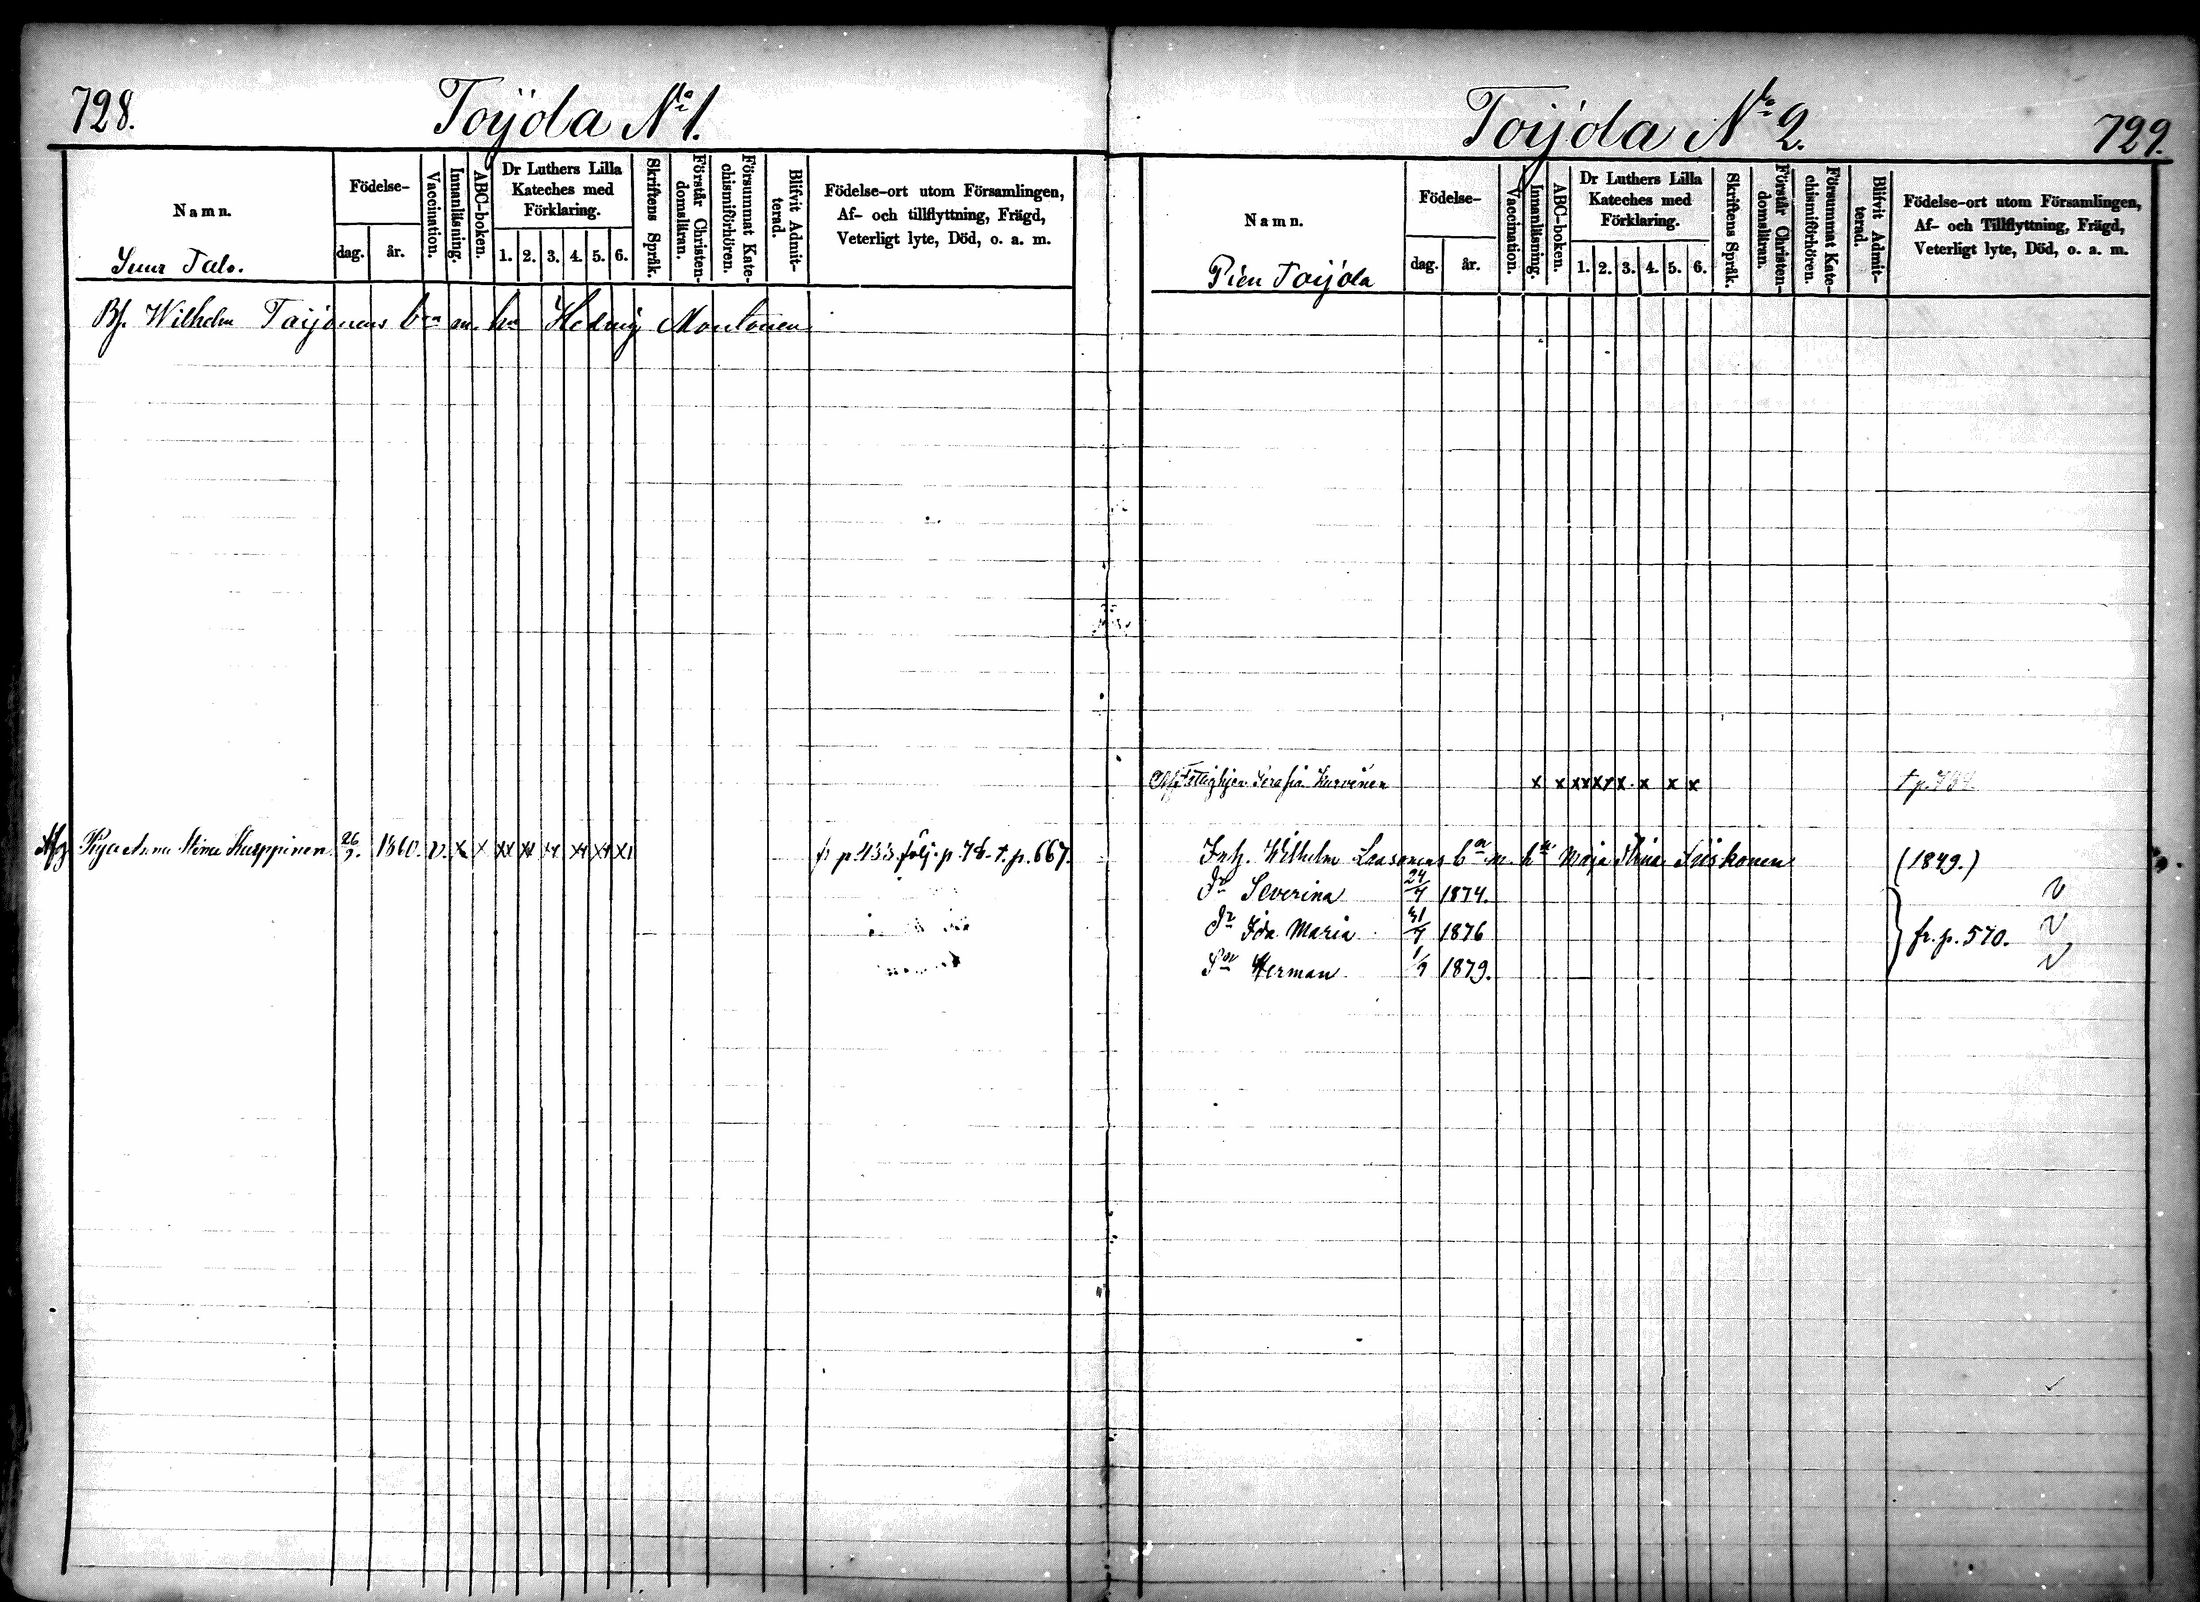 728.
Toijola No 1.
Namn.
Födelse-
dag.
år.
Vaccination.
Innanläsning.
ABC-boken.
Dr Luthers Lilla
Kateches med
Förklaring.
1. 2. 3. 4. 5. 6.
Skriftens Språk.
Förstår Christen-
domsläran.
Försummat Kate-
chismiförhören.
Blifvit Admit-
terad.
Födelse-ort utom Församlingen,
Af- och tillflyttning, Frägd,
Veterligt lyte, Död, o. a. m.
Suur Talo.
Bf. Wilhelm Toijonens bn m. hu Hedvig Montonen
Afg Piga Anna Stina Karppinen 26/9. 1860. v. x x xx xx xx xx xx x fr p 433. följ. p 78. t. p. 667.
Toijola No 2.
729.
Namn.
Födelse-
dag.
år.
Vaccination.
Innanläsning.
ABC-boken.
Dr Luthers Lilla
Kateches med
Förklaring.
1. 2. 3. 4. 5. 6.
Skriftens Språk.
Förstår Christen-
domsläran.
Försummat Kate-
chismiförhören.
Blifvit Admit-
terad.
Födelse-ort utom Församlingen,
Af- och Tillflyttning, Frägd,
Veterligt lyte, Död, o. a. m.
Pien Toijola
Serafia Kurvinen x x xx xx x x x x t p.
Inh. Wilhelm Laasonens bn m. hu Maja Stina Siiskonen (1849.)
Dr Severina 24/7 1874. v
Dr Ida Maria 31/7 1876 fr. p. 570. v
Sn Herman 1/9 1879. v